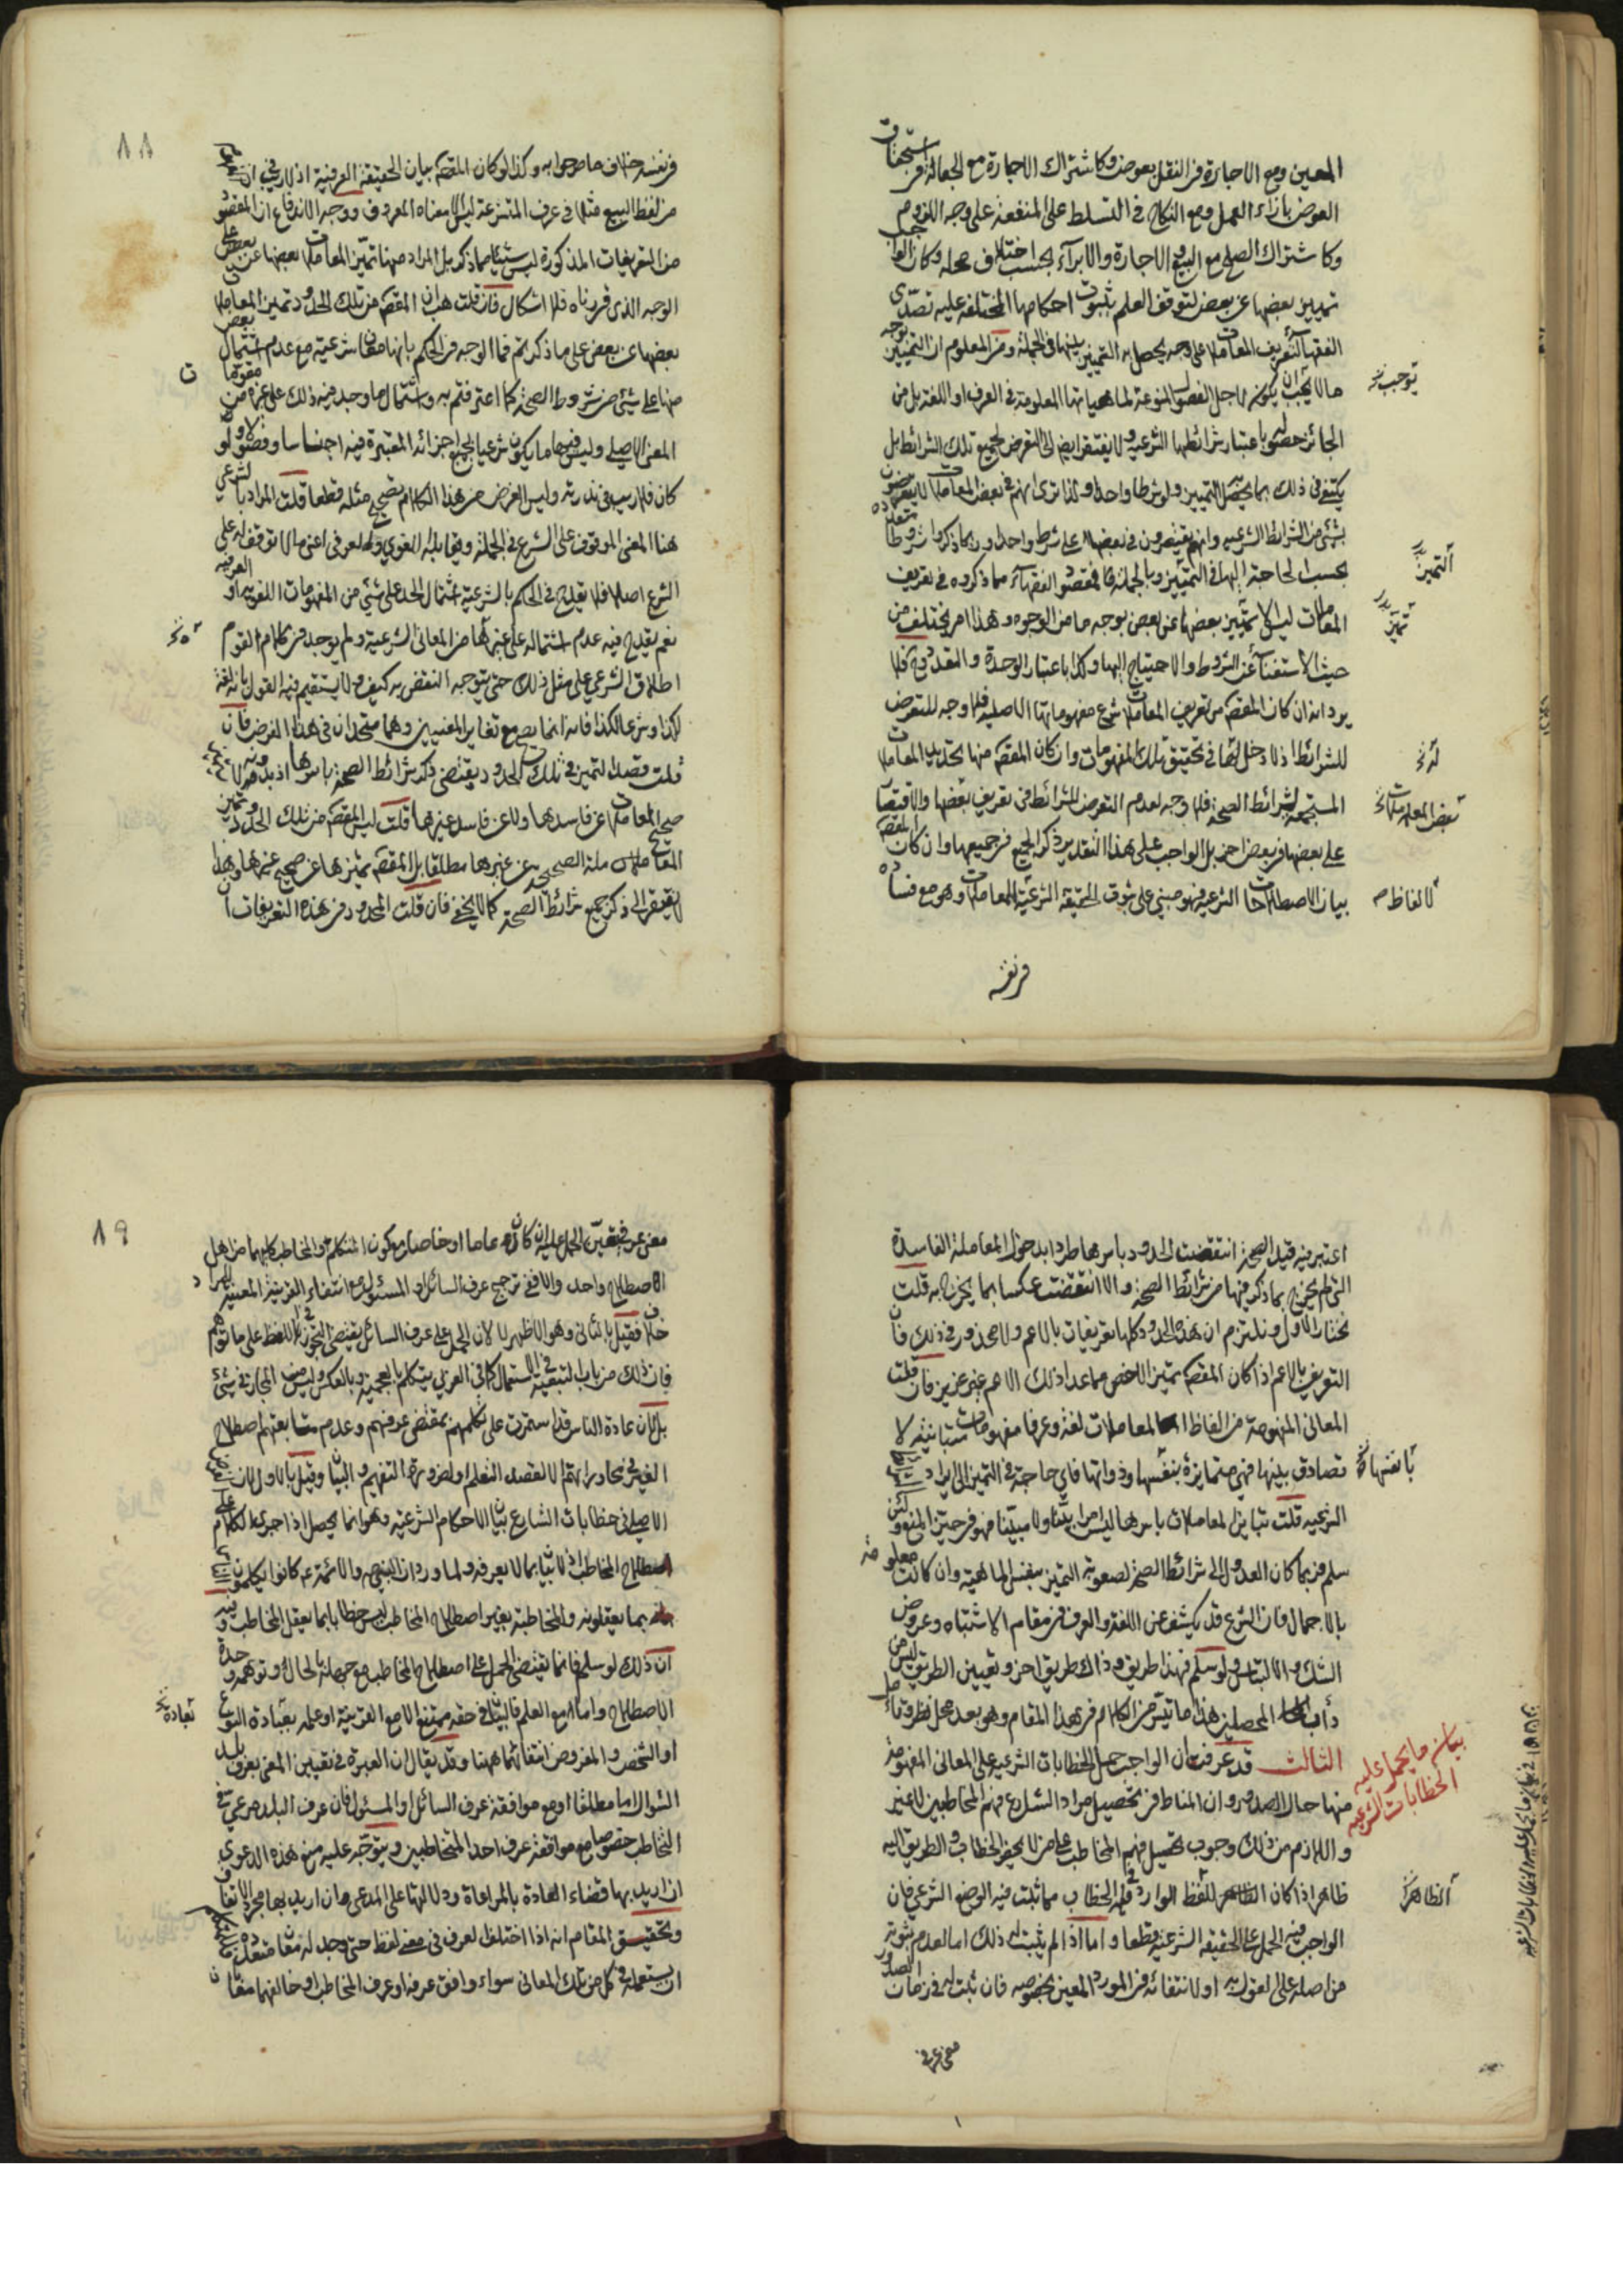 المعين ومع الاجارة في النقل بعوض وكاشتراك الاجارة مع الجعالة في استحقاق
العوض بازاء العمل ومع النكاح في التسلط على المنفعة على وجه اللزوم
وكاشتراك الصلح مع البيع والاجارة والابرآء بحسب اختلاف محله وكان الواجب
تمييز بعضها عن بعض لتوقف العلم بثبوت احكامها المختلفة عليه تصدى
الفقهآء لتعريف المعاملات على وجه يحصل به التمييز بينها في الجملة ومن المعلوم ان التمييز بوجه
ما لا يجب ان يكون من اجل الفصول المنوعة لماهياتها المعلومة في العرف او اللغة بل من
توجب خ
الجائز حصوله باعتبار شرائطها الشرعيه ولا يفتقر ايض الى التعرض لجميع تلك الشرائط بل
يكتفي في ذلك بما يحصل التمييز ولو شرطا واحدا ولذا ترى انهم في بعض المعاملات لا يتعرضون
بشئ من الشرائط الشرعيه وانهم يقتصرون في بعضها على شرط واحد وربما ذكروا شروطا متعددة
بحسب الحاجة اليها في التمييز وبالجملة فمقصود الفقهآء مما ذكروه في تعريف
التميز
المعاملات ليس الا تمييز بعضها عن بعض بوجه ما من الوجوه وهذا امر يختلف من
تميز
حيث الاستغنآء عن الشروط والاحتياج اليها وكذا باعتبار الوحدة والتعدد فيه فلا
يرد انه ان كان المقصم من تعريف المعاملات شرح مفهوماتها الاصلية فلا وجه للتعرض
للشرائط اذ لا دخل لها في تحقيق تلك المفهومات وان كان المقصم منها تحديد المعاملات
له خ
المستجمعة لشرائط الصحة فلا وجه لعدم التعرض للشرائط في تعريف بعضها والاقتصار
بعض المعاملات خ
على بعضها في بعض اخر بل الواجب على هذا التقدير ذكر الجميع في جميعها وان كان المقصم
بيان الاصطلاحات الشرعية فهو مبني على ثبوت الحقيقة الشرعية للمعاملات وهو مع فساده
لالفاظ
في نفسه
٨٨
في نفسه خلاف ما صرحوا به وكذا لو كان المقصم بيان الحقيقة العرفية اذ لا ريب في ان
من لفظ البيع مثلا في عرف المتشرعة ليس الا معناه المعروف ووجه الاندفاع ان المقصود
من التعريفات المذكورة ليس شيئا مما ذكر بل المراد منها تميز المعاملات بعضها عن بعض على
الوجه الذي قررناه فلا اشكال فان قلت هب ان المقصم من تلك الحدود تميز المعاملات
بعضها عن بعض على ما ذكرتم فما الوجه في الحكم بانها معان شرعية مع عدم اشتمال بعض
منها على شئ من شروط الصحة كما اعترفتم به واشتمال ما وجد فيه ذلك على غيره من مقومات
المعنى الاصلي وليس فيها ما يكون شرعيا بجميع اجزائه المعتبرة فيه اجناسا وفصولا ولو
كان فلا ريب في ندرته وليس الغرض من هذا الكلام تصحيح مثله قطعا قلت المراد بالشرعي
هنا المعنى الموقوف على الشرع في الجملة ويقابله اللغوي والعرفي اعني ما لا توقف له على
الشرع اصلا فلا يقدح في الحكم بالشرعية اشتمال الحد على شئ من المفهومات اللغوية او العرفيه
نعم يقدح فيه عدم اشتماله على غيرها من المعاني الشرعية ولم يوجد في كلام القوم
اطلاق الشرعي على مثل ذلك حتى يتوجه النقض به كيف ولا يستقيم فيه القول بانه لغة
لكذا وشرعا لكذا فانه انما يصح مع تغاير المعنيين وهما متحدان في هذا الفرض فان
قلت قصد التميز في تلك الحدود يقتضي ذكر شرائط الصحة باسرها اذ بدونه لا
صحيح المعاملات عن فاسدها ولا عن فاسد غيرها قلت ليس المقصم من تلك الحدود تمايز
المعاملات الصحيحة عن غيرها مطلقا بل المقصم تميزها عن صحيح غيرها وهذا
لا يفتقر الى ذكر جميع شرائط الصحة كما لا يخفى فان قلت المحدود في هذه التعريفات ان
اعتبر فيه قيد الصحة انتقضت الحدود باسرها طردا بدخول المعاملة الفاسدة
التي لم يخرج بما ذكر فيها من شرائط الصحة والا انتقضت عكسا بما يخرج به قلت
نختار الاول ونلتزم ان هذه الحدود كلها تعريفات بالاعم ولا محذور في ذلك فان
التعريف بالاعم اذا كان المقصم تميز الاخص مما عدا ذلك الاعم غير عزيز فان قلت
المعاني المفهومة من الفاظ المعاملات لغة وعرفا مفهومات متباينة لا
تصادق بينها فهي متمايزة بنفسها وذواتها فاي حاجة في التميز الى ايراد
بانفسها خ
الشرعيه قلت تباين المعاملات باسرها ليس امرا بينا ولا مبينا فهو في حيز المنع ولئن
سلم فربما كان العدول الى شرائط الصحة لصعوبة التميز بنفس الماهية وان كانت معلومة
بالاجمال فان الشرع قد يكشف عن اللغة والعرف في مقام الاشتباه وعروض
الشك والالتباس ولو سلم فهذا طريق وذاك طريق اخر وتعيين الطريق ليس من
دأب المحصلين هذا ما تيسر من الكلام في هذا المقام وهو بعد محل نظر وتامل
الثالث قد عرفت ان الواجب حمل الخطابات الشرعيه على المعاني المفهومة
بيان ما يحمل عليه
الخطابات الشرعيه
منها حال الصدور وان المناط في تحصيل مراد الشارع فهم المخاطبين لا غير
واللازم من ذلك وجوب تحصيل فهم المخاطب على من لا يحضر الخطاب والطريق اليه
ظاهر اذا كان اللفظ الوارد في الخطاب مما ثبت فيه الوضع الشرعي فان
الظاهر خ
الواجب فيه الحمل على الحقيقة الشرعية قطعا واما اذا لم يثبت له ذلك اما لعدم ثبوته
من اصله على القول به او لانتفائه في المورد المعين بخصوصه فان ثبت له في زمان الصدور
معنى عرفي
٨٩
معنى عرفي تعين الحمل عليه ان كان عاما او خاصا مع كون المتكلم والمخاطب كلاهما من اهل
الاصطلاح واحد والا ففي ترجيح عرف السائل او المسئول مع انتفاء القرينة المعينة للمراد
خلاف فقيل بالثاني وهو الاظهر لا لان الحمل على عرف السائل يقتضي التجوز في اللفظ على ما توهم
فان ذلك من باب التبعية في الاستعمال كما في العربي يتكلم بالعجمية وبالعكس وليس من المجاز في شئ
بل لان عادة الناس قد استمرت على تكلمهم بمقتضى عرفهم وعدم متابعتهم اصطلاح
الغير في محاوراتهم الا لقصد التعلم او لضرورة التفهيم والبيان وقيل بالاول لان الغرض
الاصلي في خطابات الشارع بيان الاحكام الشرعية وهو انما يحصل اذا جرى الكلام على
اصطلاح المخاطب اذ لا بيان بما لا يعرفه ولما ورد ان النبي ص والائمة ع كانوا يكلمون الناس
بما يعقلونه والمخاطبة بغير اصطلاح المخاطب ليس خطابا بما يعقل المخاطب وفيه
ان ذلك لو سلم فانما يقتضي الحمل على اصطلاح المخاطب مع جهله بالحال وتوهمه وحدة
الاصطلاح واما مع العلم فالبيان في حقه ممتنع الا مع القرينة او علمه بعادة النوع
بعادة خ
او الشخص والمفروض انتفائهما ههنا وقد يقال ان العبرة في تعيين المعنى بعرف بلد
السؤال اما مطلقا او مع موافقة عرف السائل او المسئول فان عرف البلد مرعي في
التخاطب خصوصا مع موافقة عرف احد المتخاطبين ويتوجه عليه منع هذه الدعوى
ان اريد بها قضاء العادة بالمراعاة ودلالتها على المدعى ان اريد بها مجرد الاتفاق
وتحقيق المقام انه اذا اختلف العرف في معنى لفظ حتى وجد له معان متعددة
ان يستعمله في كل من تلك المعاني سواء وافق عرفه او عرف المخاطب او خالفهما معا